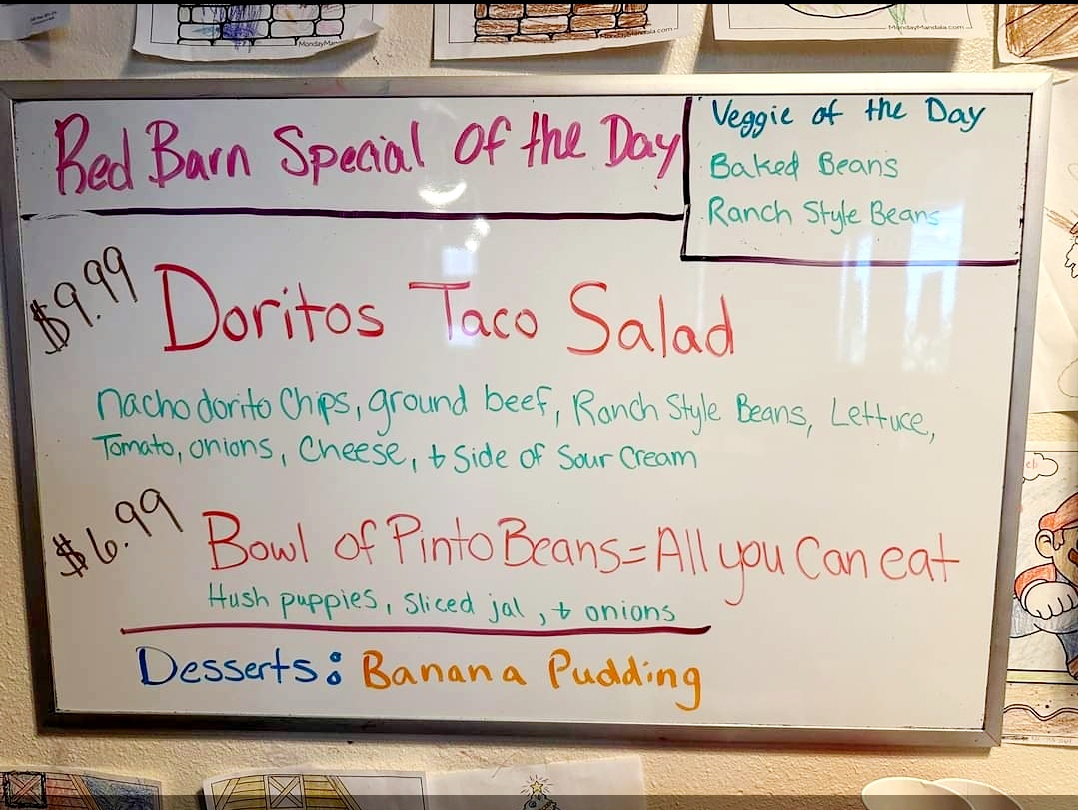 MondayMandala.com
MondayMandala.com
Red Barn Special Of the Day
Veggie of the Day
Baked Beans
Ranch Style Beans
$9.99
Doritos Taco Salad
nacho dorito Chips, ground beef, Ranch Style Beans, Lettuce,
Tomato, onions, Cheese, + Side of Sour Cream
$6.99
Bowl of Pinto Beans = All you Can eat
Hush puppies, Sliced jal, + onions
Desserts: Banana Pudding